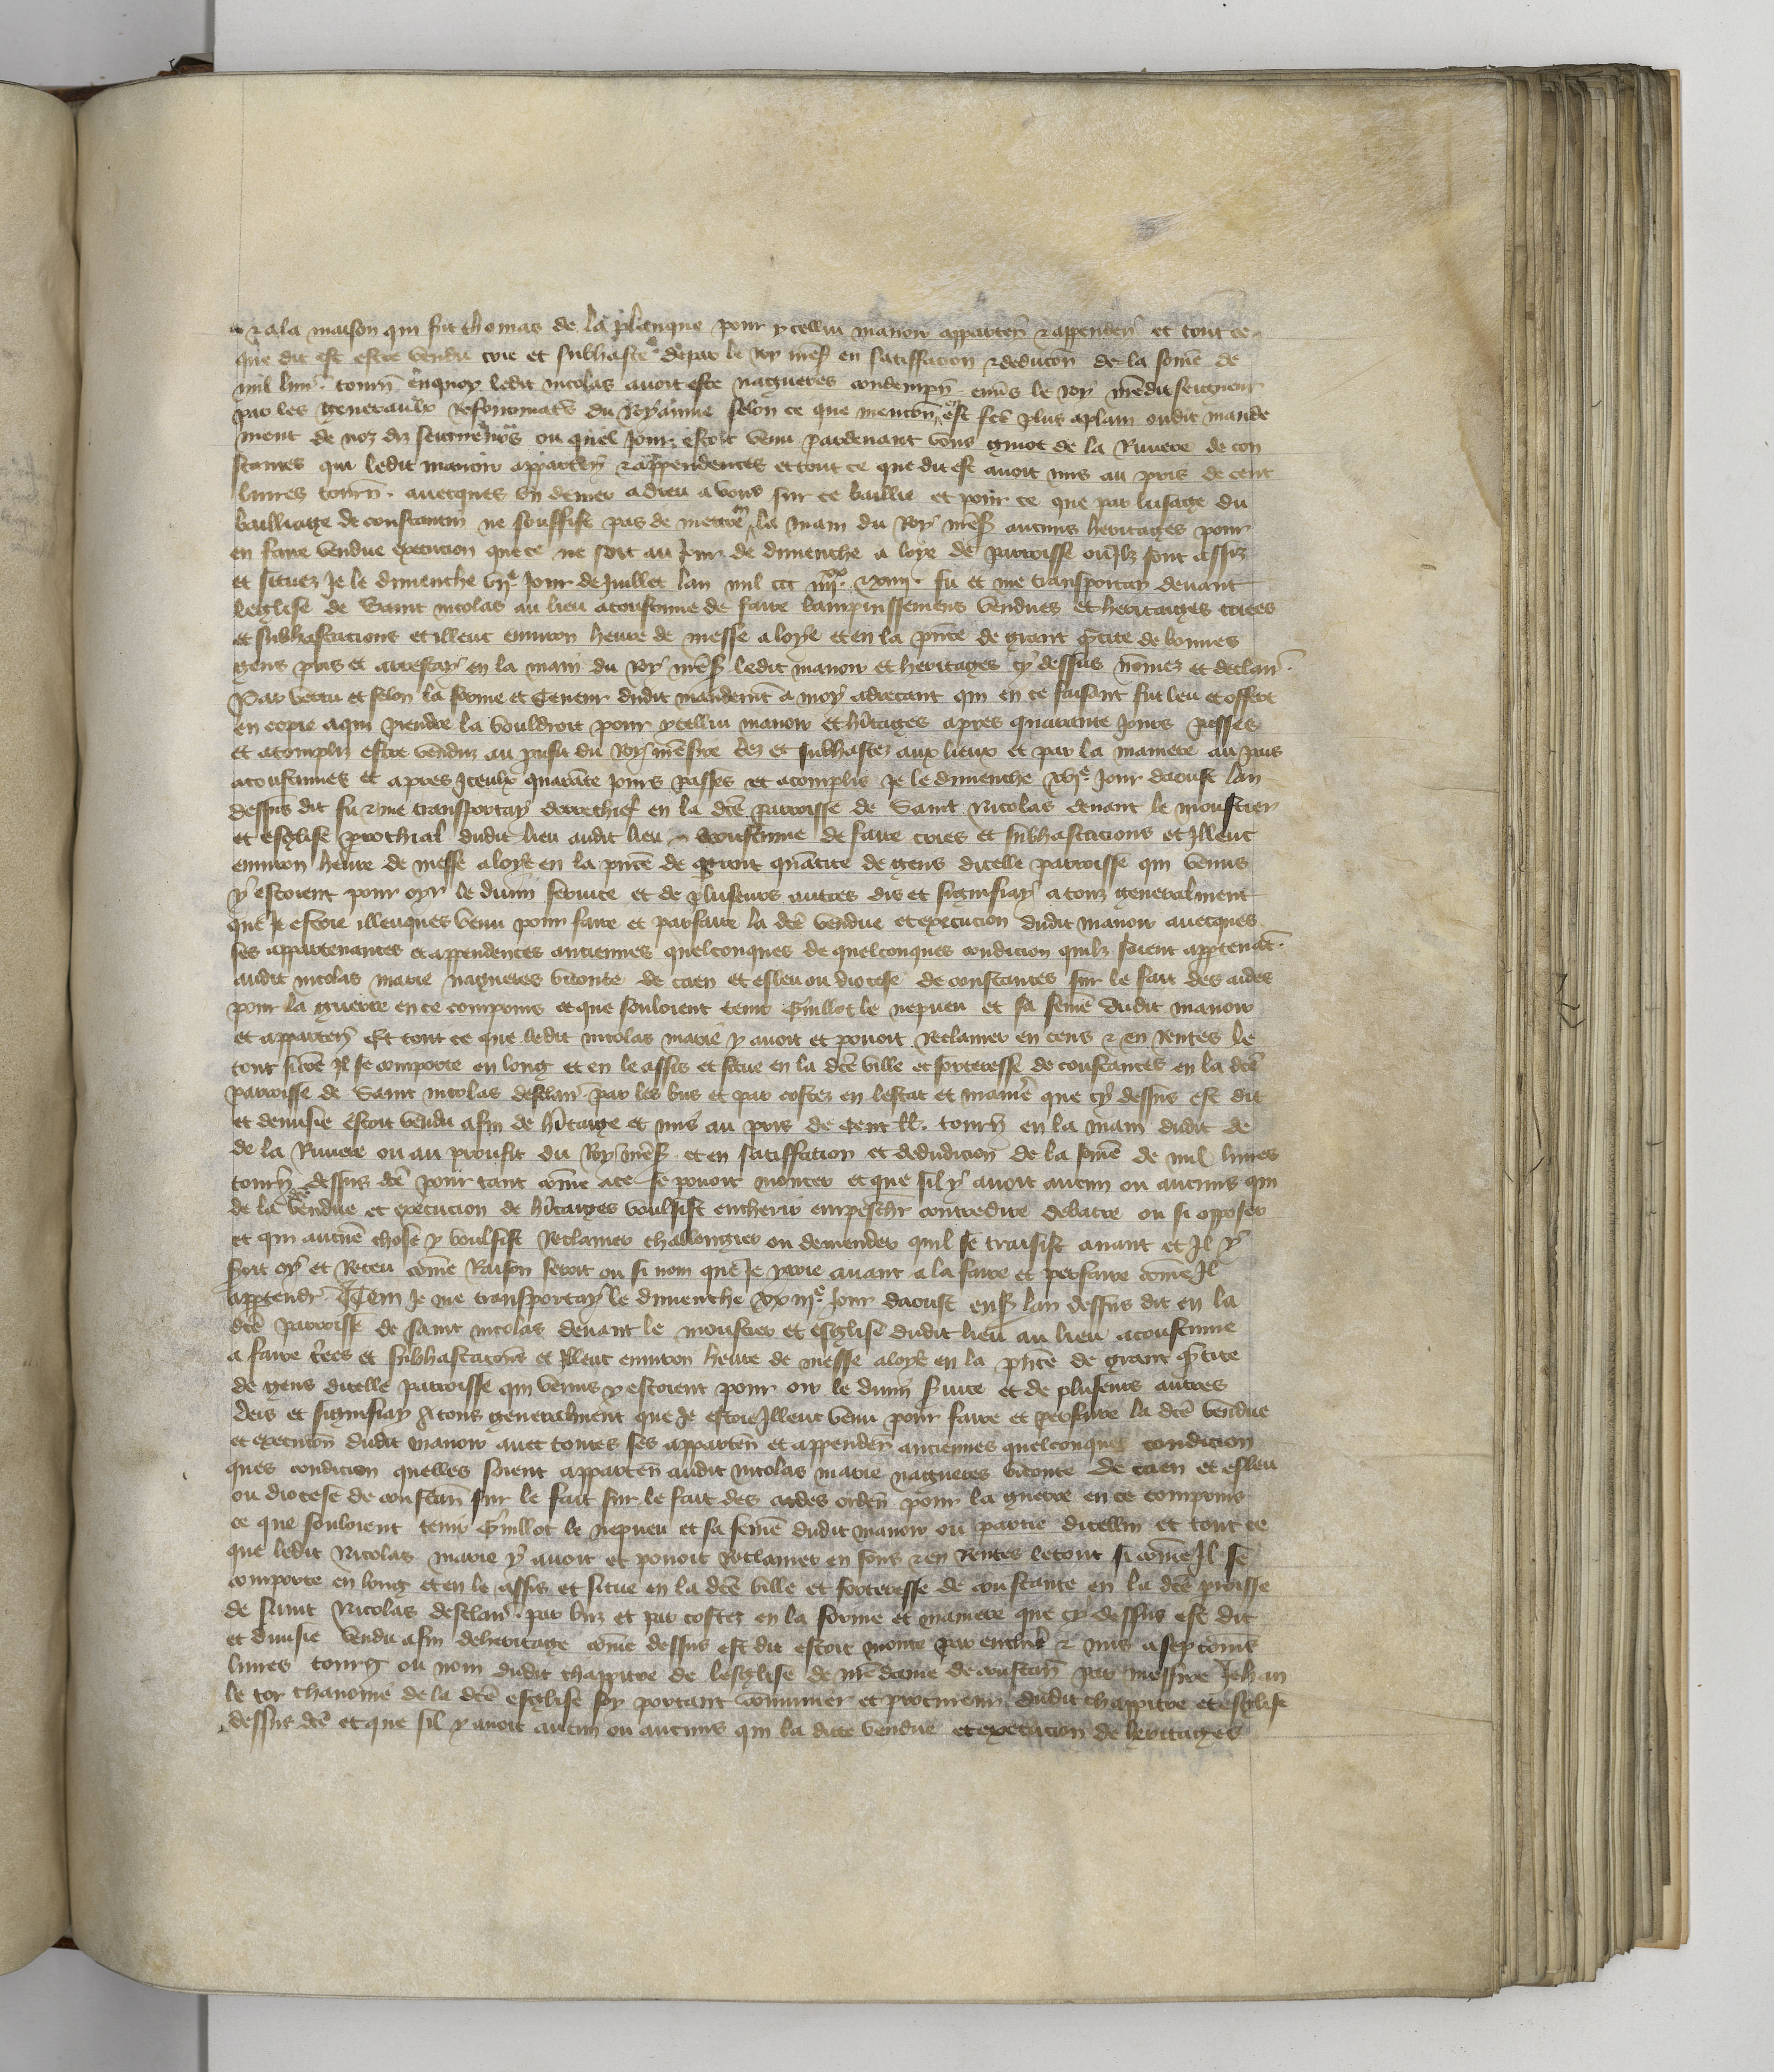 & a la maison qui fut thomas de la planque pour ycellui manoir apparten̄ & appenden̄ et tout ce
que dit est estre vendu crie et subhaste depar le roy mess̄ en satiffacion & deducōn de la som̄e de
mil liur̄. tourn̄ enquoy ledit nicolas auoit este nagueres condempn̄ enūs le Roy mond̄it seigneur
par les generaulx refformateˢ du Royaume selon ce que mencōn en est fcē plus aplain oudit mande
ment de noz diz seigneˢ ou quel Jour estoit venu pardeuant vous guiot de la Riuiere de con
stances qui ledit manoir apparten̄ & appendences et tout ce que dit est auoit mis au pris de cent
liures tourn̄. auecques vn denier adieu a vous sur ce baillie et pour ce que par lusage du
bailliage de constantin ne souffist pas de mettre en la main du Roy mess̄ aucuns heritages pour
en faire vendue execucion que ce ne soit au Jour de dimenche a loye de parroisse ou Ilz sont assiz
et situez Je le dimenche vijᵉ Jour de Juillet lan mil ccc iiijˣˣ & xiiij. fu et me transportay deuant
leglise de Saint nicolas au lieu acoustume de faire lampinssemens vendues et heritaiges criees
et subhastacions et illeuc enuiron heure de messe a loye et en la p̄nce de grant q̄ntite de bonnes
gens pris et arrestay en la main du roy mess̄ ledit manoir et heritages cy dessus nōmez et declair̄.
Par vertu et selon la forme et teneur dudit mandem̄t a moy adrecant qui en ce faisant fut leu et offert
en copie a qui prendre la vouldroit pour ycellui manoir et h̄itages apres quarante Jours passes
et acompliz estre venduz au prufit du roy messire criez et subhastez aux lieux et par la maniere au pais
acoustumes et apres Iceulx quarāte Jours passes et acomplis Je le dimenche xviᵉ Jour daoust lan
dessus dit fu & me transportay derrechief en la dcē parroisse de Saint Nicolas deuant le moustier
et esglise prochial dudit lieu audit lieu acoustume de faire cries et subhastacions et Illeuc
enuiron heure de messe a loye en la p̄nce de grant quātite de gens dicelle parroisse qui venus
y estoient pour oyr le diuin seruice et de pluseurs autres dis et signifiay a touz generalment
que Je estoie illeuques venu pour faire et parfaire la dcē vendue et execucion dudit manoir auecques
ses appartenances et appendences anciennes quelconques de quelconques condicion quilz soient appartenāt.
audit nicolas marie nagueres viconte de caen et esleu ou diocese de constances sur le fait des aides
pour la guerre en ce comprins ce que souloient tenir Guillot le nepueu et sa fem̄e dudit manoir
et apparten̄ Et tout ce que ledit nicolas marie y auoit et pouoit reclamer en cens & en rentes le
tout si cōe Il se comporte en long et en le assis et situe en la dcē ville et forteresse de constances en la dcē
parroisse de Saint nicolas desclair̄ par les bus et par costez en lestat et manie᷒ que cy dessus est dit
et deuisie estoit vendu afin de h̄itaige et mis au pris de Cent ll. tourn̄ en la main dudit de
de la Riuiere ou au proufit du Roy mess̄ et en satiffacion et dedudicion de la som̄e de mil liures
tourn̄ dessus dcē pour tant cōme a ce se pouoit monter et que sil y auoit aucun ou aucuns qui
de la dcē vendue et execucion de h̄itaiges voulsist encherir empeschr̄ contredire debatre ou si opposer
et qui aucūe chose y voulsist Reclamer challongier ou demender quil se traisist auant et Il y
soit oy et receu cōme Raison seroit ou si nom que Je yroie auant a la faire et perfaire cōme Il
appartendr̄. Item Je me transportay le dimenche xxiijᵉ Jour daoust ens̄ lan dessus dit en la
dcē parroisse de saint nicolas deuant le moustier et esglise dudit lieu au lieu acoustume
a faire c̄ees et subhastacōns et Illeuc enuiron heure de messe a loye en la p̄nce de grant q̄ntite
de gens dicelle parroisse qui venus y estoient pour oir le diuin s̄uice et de pluseurs autres
deis et signifiay A tous generalment que Je estoie Illeuc venu pour faire et perfaire la dcē vendue
et execucōn dudit manoir auec toutes ses apparten̄ et appenden̄ anciennes quelconques condicion
ques condicion quelles soient apparten̄ audit nicolas marie nagueres viconte de caen et esleu
ou diocese de constan̄ sur le fait sur le fait des aides orden̄ pour la guerre en ce comprins
ce que souloient tenir Guillot le nepueu et sa fem̄e dudit manoir ou partie dicellui et tout ce
que ledit Nicolas marie y auoit et pouoit reclamer en fons & en Rentes le tout si cōme Il se
comporte en long et en le assis et situe en la dcē ville et forteresse de constance en la dcē p̄roisse
de saint Nicolas desclair̄ par buz et par costez en la forme et maniere que cy dessus est dit
et diuisie vendu afin deheritage cōme dessus est dit estoit monte par enchie᷒ & mis a sep conis
liures tourn̄ ou nom dudit chappitre de lesglise de nr̄e dame de constan̄ par messire Jehan
le cor chanoine de la dcē esglise soy portant commmer et procureur dudit chappitre et esglise
dessus dcē et que sil y auoit aucun ou aucuns qui la dicte vendue et execucion de heritages